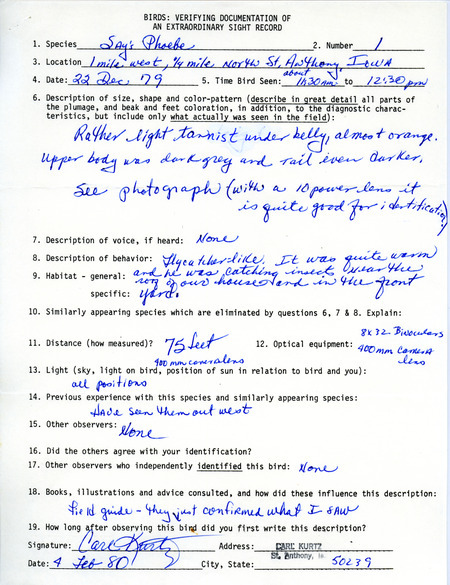 BIRDS: VERIFYING DOCUMENTATION OF
AN EXTRAORDINARY SIGHT RECORD
1. Species Say's Phoebe 2. Number 1
3. Location 1 mile west, 1/4 mile North St. Anthony, Iowa
4. Date: 22 Dec 79 5. Time Bird Seen: about 11:30 AM to 12:30 pm
6. Description of size, shape and color-pattern (describe in great detail all parts of
the plumage, and beak and feet coloration, in addition, to the diagnostic charac-
teristics, but include only what actually was seen in the field):
Rather light tannist under belly, almost orange.
Upper body was dark grey and tail even darker.
See photograph (with a 10 power lens it
is quite good for identification)
7. Description of voice, if heard: None
8. Description of behavior: flycatcher-like. It was quite warm
and he was catching insects near the
9. Habitat - general: roof of our house and in the front
specific: yard.
10. Similarly appearing species which are eliminated by questions 6, 7 & 8. Explain:
11. Distance (how measured)? 75 feet
400 mm camera lens
12. Optical equipment: 8x32 Binoculars
400 mm camera
lens
13. Light (sky, light on bird, position of sun in relation to bird and you):
all positions
14. Previous experience with this species and similarly appearing species:
Have seen them out west
15. Other observers: None
16. Did the others agree with your identification?
17. Other observers who independently identified this bird: None
18. Books, illustrations and advice consulted, and how did these influence this description:
field guide - they just confirmed what I saw
19. How long after observing this bird did you first write this description?
Signature: Carl Kurtz Address: CARL KURTZ
St. Anthony, Ia
Date: 4 Feb 80 City, State: 50239